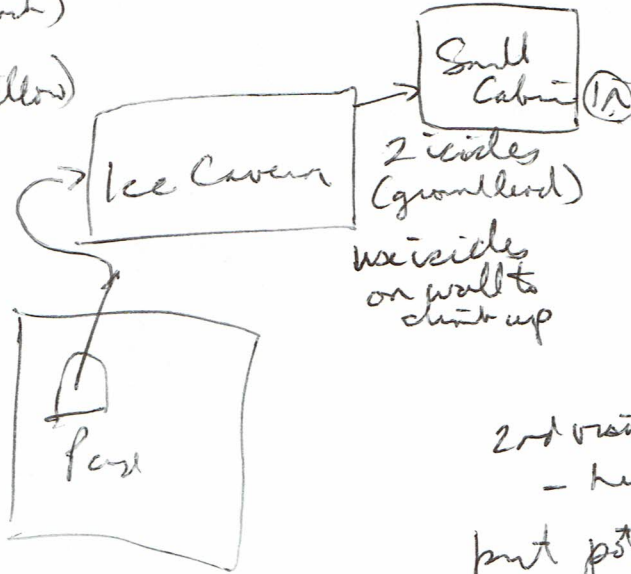 Small
Cabin IN
Ice Cavern
2 icicles
(ground level)
use icicles
on wall to
climb up
2nd
put